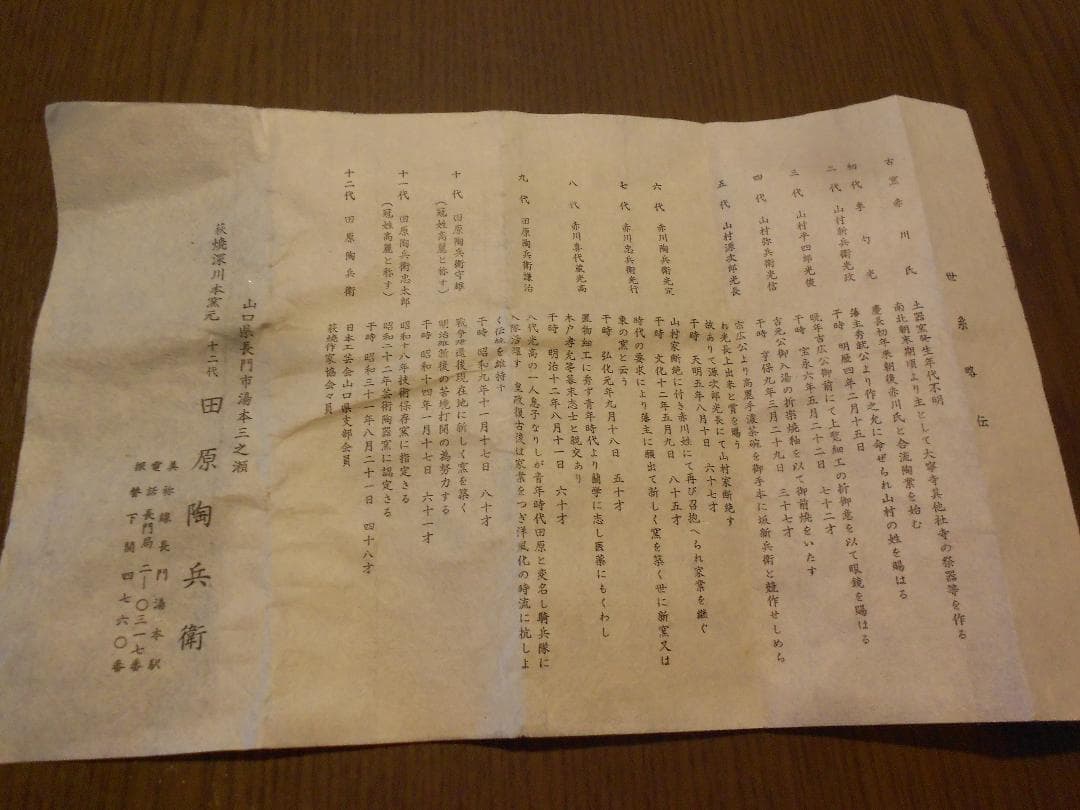 世系略伝
古窯赤川氏
土器窯発生年代不明
南北朝末期頃より主として大寧寺其他社寺の祭器等を作る
初代 李勺光
慶長初年来朝後赤川氏と合流陶業を始む
二代 山村新兵衛光政
藩主秀就公より作之允に命ぜられ山村の姓を賜はる
干時 明歴四年二月十五日
三代 山村平四郎光俊
晩年吉広公御前にて上覧細工の折御意を以て眼鏡を賜はる
干時 宝永六年五月二十二日 七十二才
四代 山村弥兵衛光信
吉元公御入湯の折楽焼釉を以て御前焼をいたす
干時 享保九年三月二十九日 三十七才
五代 山村源次郎光長
宗広公より高麗手濃茶碗を御手本に坂新兵衛と競作せしめら
れ光長上出来と賞を賜う
故ありて源次郎光長にて山村家断絶す
干時 天明五年八月十日 六十七才
六代 赤川陶兵衛光定
山村家断絶に付き赤川姓にて再び召抱へられ家業を継ぐ
干時 文化十二年五月九日 八十五才
七代 赤川忠兵衛光行
時代の要求により藩主に願出て新しく窯を築く世に新窯又は
東の窯と云う
干時 弘化元年九月十八日 五十才
八代 赤川喜代蔵光高
置物細工に秀ず青年時代より蘭学に志し医薬にもくわし
木戸孝允等幕末志士と親交あり
干時 明治十二年八月十一日 六十才
九代 田原陶兵衛謙治
八代光高の一人息子なりしが青年時代田原と変名し騎兵隊に
入隊活躍す 皇政復古後は家業をつぎ洋風化の時流に抗しよ
く伝統を維持す
干時 昭和九年十一月十七日 八十才
十代 田原陶兵衛守雄
(冠姓高麗と称す)
戦争帰還後現在地に新しく窯を築く
明治維新後の苦境打開の為努力する
干時 昭和十四年一月十七日 六十一才
十一代 田原陶兵衛忠太郎
(冠姓高麗と称す)
昭和十八年技術保存窯に指定さる
昭和二十二年芸術陶器窯に認定さる
干時 昭和三十一年八月二十一日 四十八才
十二代 田原陶兵衛
日本工芸会山口県支部会員
萩焼作家協会々員
山口県長門市湯本三之瀬
萩焼深川本窯元 十二代 田原陶兵衛
美祢線長門湯本駅
電話長門局二ー〇三一七番
振替下関四七六〇番